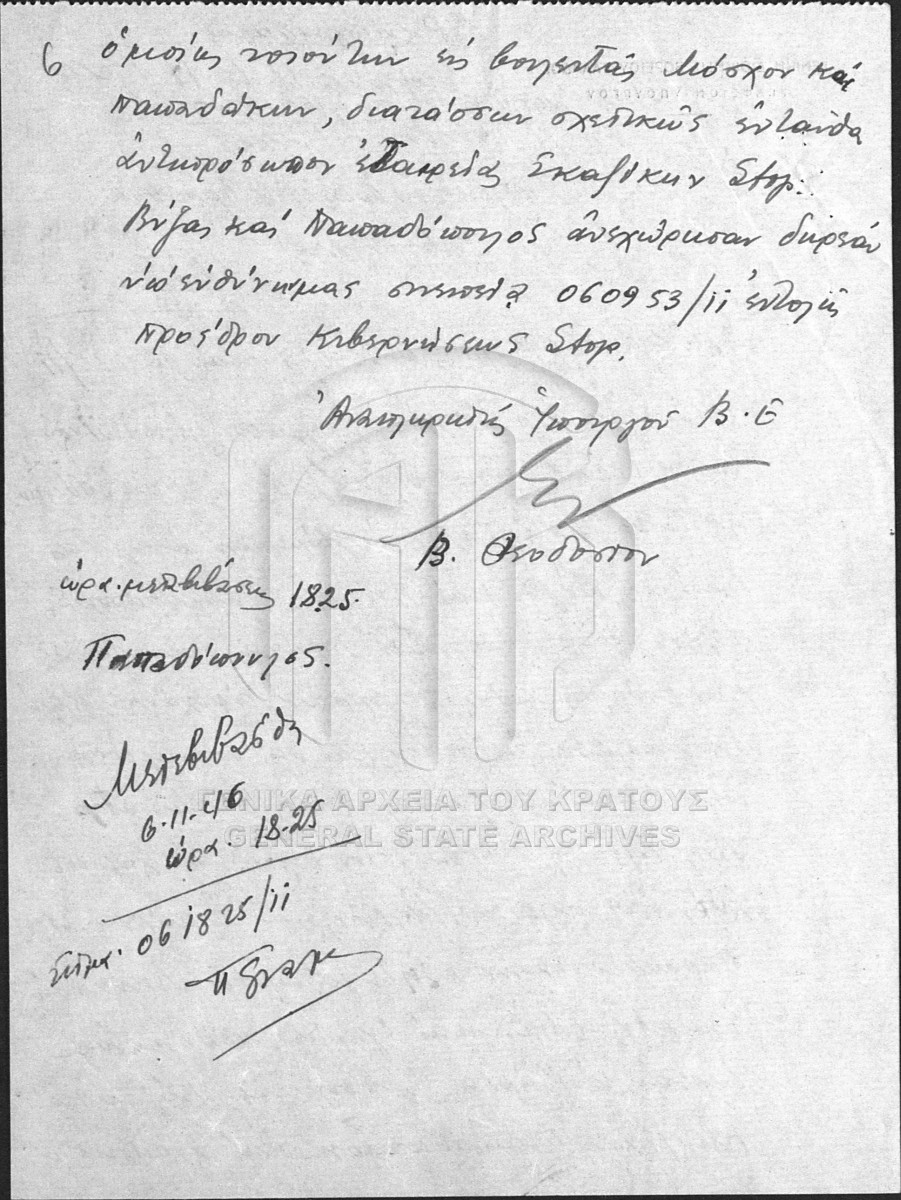 6 ὁμοίως τοιοῦτην εἰς βουλευτάς Μόσχον και
Παπαδάκην, διατάσσων σχετικῶς ἐνταῦθα
ἀντιπρόσωπον ἑταιρείας Σκαζίκην Stop.
Βύζας καί Παπαδόπουλος ἀνεχώρησαν δωρεάν
συνεπεία 060953/ii ἐντολῆς
Προέδρου Κυβερνήσεως Stop.
Ἀναπληρωτής Ὑπουργοῦ Β. Ε
Β. Θεοδοσίου
ὥρα μεταβιβάσεως 1825.
Παπαδόπουλος.
Μετεβιβάσθη
6-11-46
ὥρα. 18-25
Σῆμα. 061825/ii
ΓΕΝΙΚΑ ΑΡΧΕΙΑ ΤΟΥ ΚΡΑΤΟΥΣ
GENERAL STATE ARCHIVES